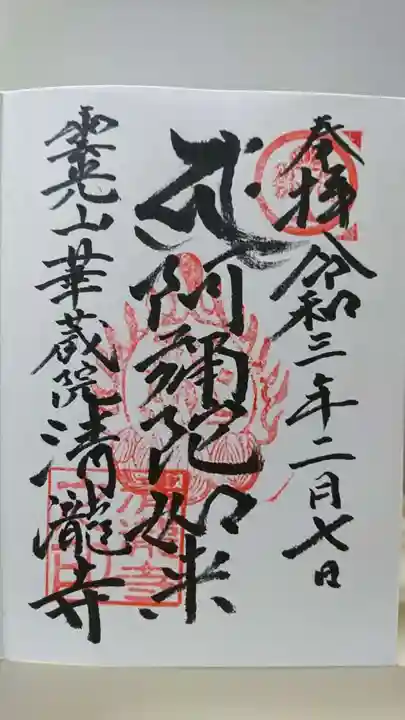 奉拝 令和三年二月七日
阿彌陀如来
雲光山華蔵院清瀧寺